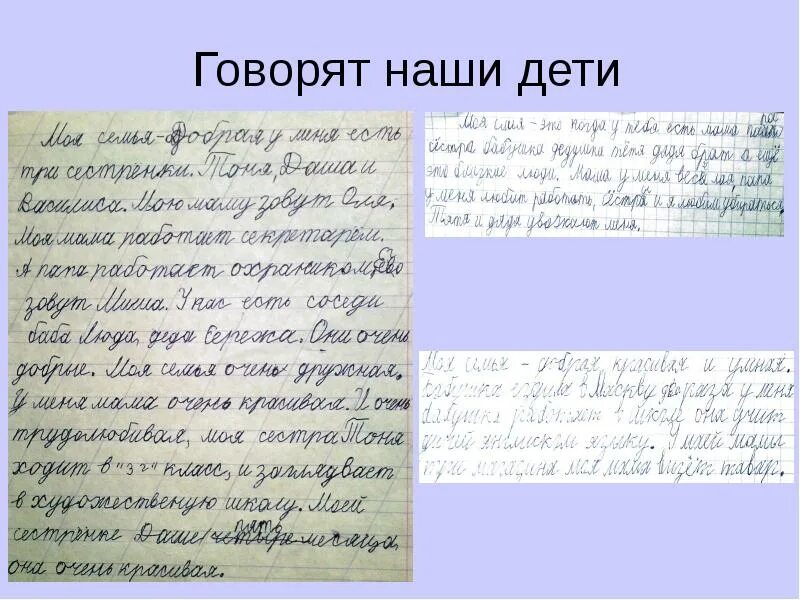 Говорят наши дети
Моя семья - Добрая у меня есть
три сестрёнки. Тоня, Даша и
Василиса. Мою маму зовут Оля.
Моя мама работает секретарём.
А папа работает охраником, Ево
зовут Миша. У нас есть соседи
баба Люда, деда Сережа. Они очень
добрые. Моя семья очень дружная.
У меня мама очень красивая. И очень
трудолюбивая, моя сестра Тоня
ходит в "3 г" класс, и заглядвает
в художественую школу. Моей
сестрёнке Даше пять месяца,
она очень красивая.
Моя сия - это когда у тебя есть мама папа
сёстра бабушка дедушка тётя дядя брат а ещё
это близкие люди. Мама у меня весёлая, папа
у меня любит работать, сёстра и я любим убираться.
Тётя и дядя уважают меня.
Моя семья - добрая, красивая и умная.
Бабушка ездила в Москву два раза у меня
бабушка работает в школе она учит
детей английском языку. У моей мамы
магазина моя мама везёт тавар.